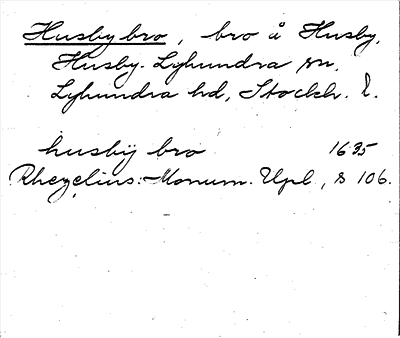 Husby bro, bro å Husby,
Husby-Lyhundra sn,
Lyhundra hd, Stockh. l.
husbÿ bro 1635
Rhezelius: Monum. Upl., s 106.